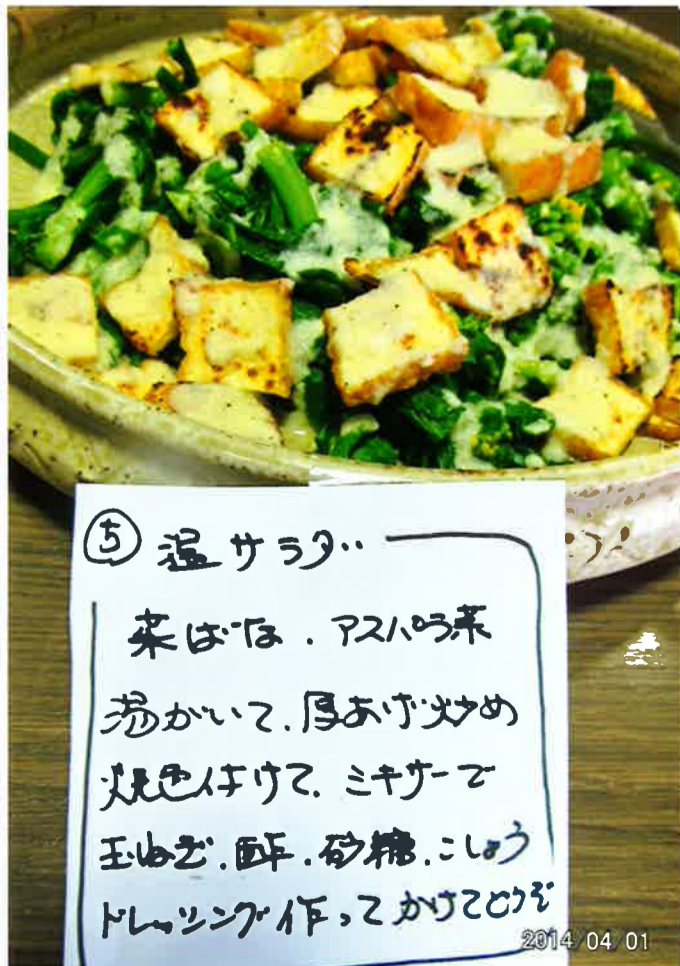 ⑤ 温サラダ
菜ばな、アスパラ菜
湯がいて、厚あげ炒め
焼色付けて、ミキサーで
玉ねぎ、酢、砂糖、こしょう
ドレッシング作ってかけてどうぞ
2014/04/01